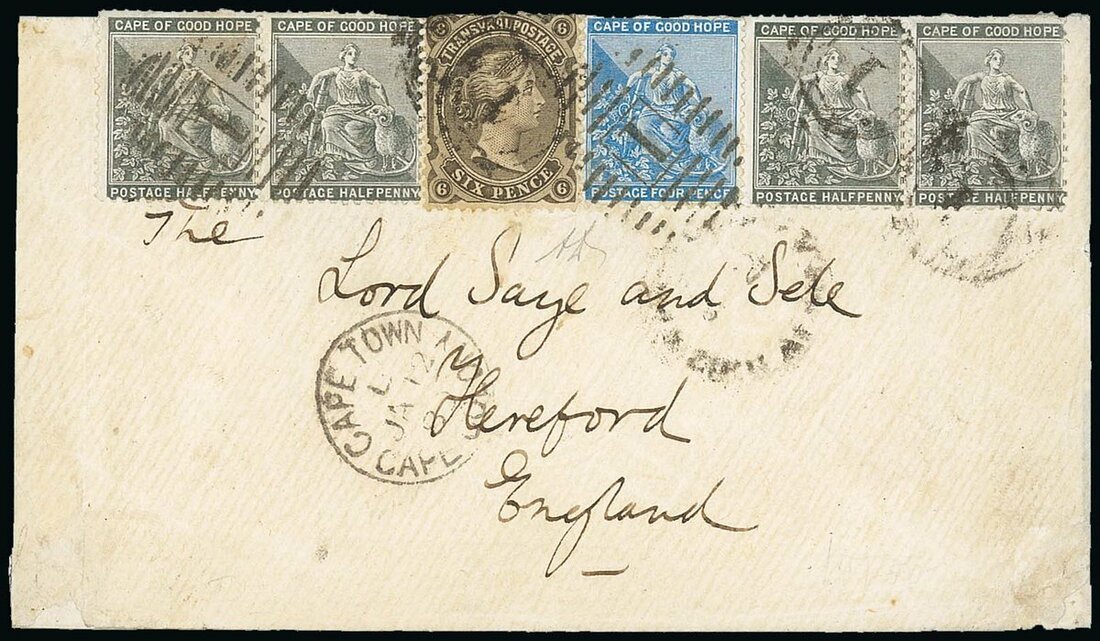 CAPE OF GOOD HOPE
POSTAGE HALFPENNY
CAPE OF GOOD HOPE
POSTAGE HALFPENNY
6 TRANSVAAL POSTAGE 6
6 SIX PENCE 6
CAPE OF GOOD HOPE
POSTAGE FOUR PENCE
CAPE OF GOOD HOPE
POSTAGE HALFPENNY
CAPE OF GOOD HOPE
POSTAGE HALFPENNY
The
Lord Saye and Sele
Hereford
England
CAPE TOWN
JA 12
CAPE